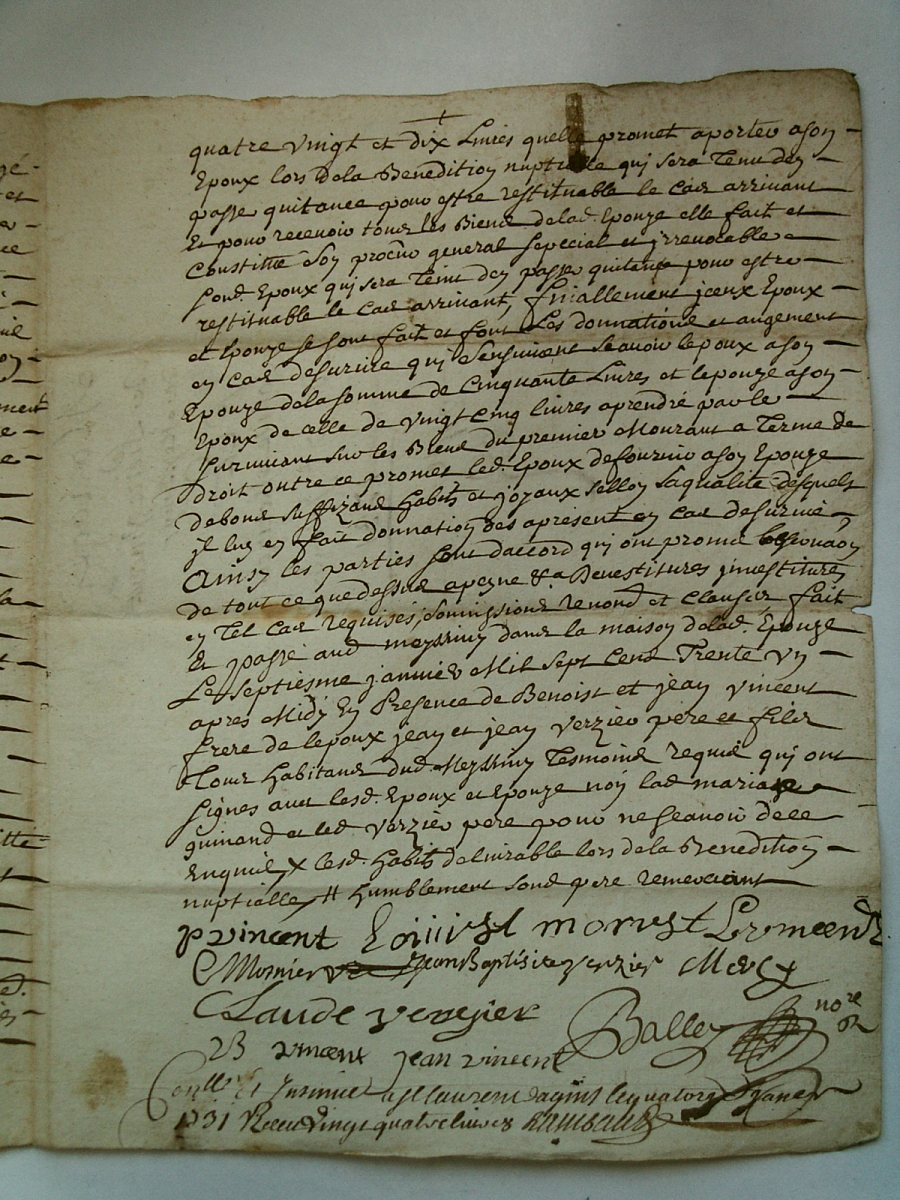 quatre vingt et dix Livres quelle promet aporter a son
Epoux lors dela Benedition nuptialle qui sera Tenu den
passé quitance pour estre restituable le cas arrivant
Et pour recevoir tous les Biens delad. Epouze elle fait et
Constitte son general special et irrevocable
Sond. Epoux qui sera Tenu den passer quitance pour estre
restituable le cas arrivant, finallement jceux Epoux
et Epouze se sont fait et font Les donnations et augement
en cas de survie qui sensuivent scavoir lepoux a son
Epouze dela somme de Cinquante Livres et lepouze a son
Epoux de celle de vingt cinq livres aprendre par le
survivant sur les Biens du premier Mourant a Terme de
droit outre ce promet led. Epoux de fournir a son Epouze
de bons suffizans habits et joyaux sellon sa qualité desquels
jl luy en fait donnation des apresent en cas de survie,
Ainsy les parties sont daccord qui ont promis
de tout ce que dessus a peyne &a Devestitures jnvestitures
en Tel cas requises, somissions renond. et clauses, fait
Et passé aud. meyssiny dans la maison delad. Epouze
Le septiesme janvier Mil sept Cens Trente Un
apres Midy En Presence de Benoist et jean vincent
frere de lepoux jean et jean verzier père et fils
Tous habitans dud. Meyssiny Tesmoins requis qui ont
signés avec lesd. Epoux et Epouze non lad. mariage
guinand et led. verzier pere pour ne scavoir de ce
Enquis X lesd. habits delivrable lors de la Benedition
nuptialle // humblement sond. pere remerciant
p vincent
Mornier Jean Baptiste verzier
Claude verzier Balley nore
B vincent jean vincent
Conllé Et Insinué a st laurent dagnis le quatorze Janer
1731 Receu vingt quatre livres